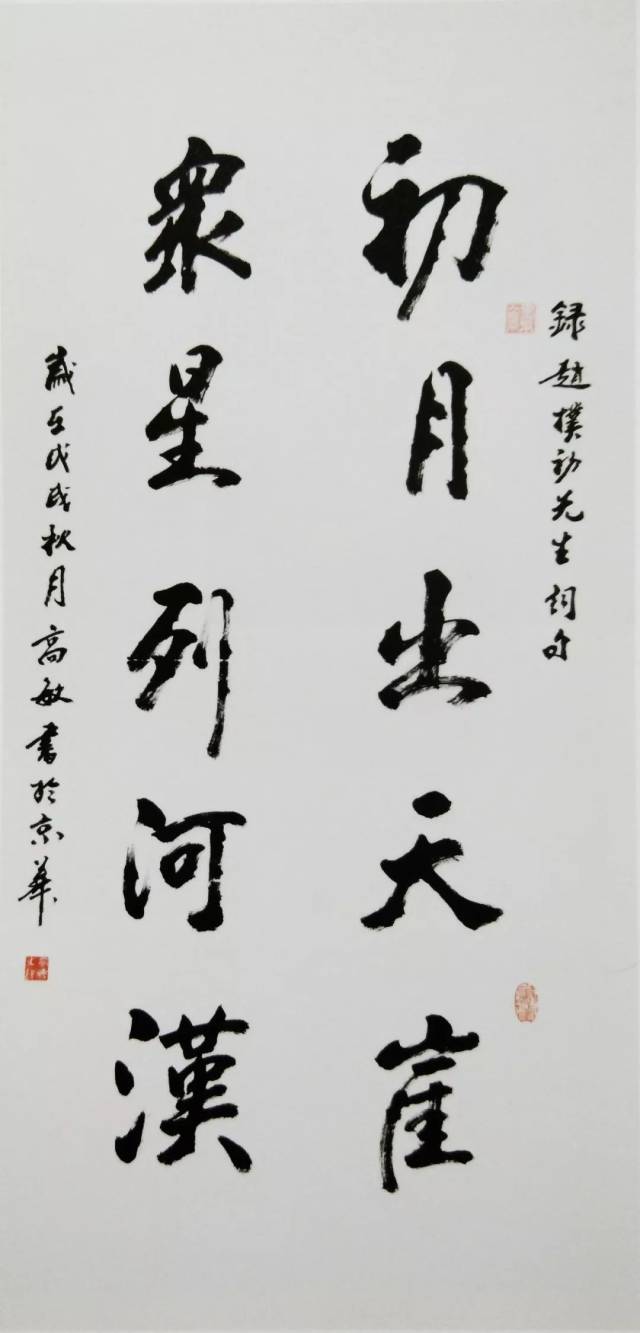 録趙樸初先生詞句
初月出天崖
衆星列河漢
歲在戊戌秋月高敏書於京華